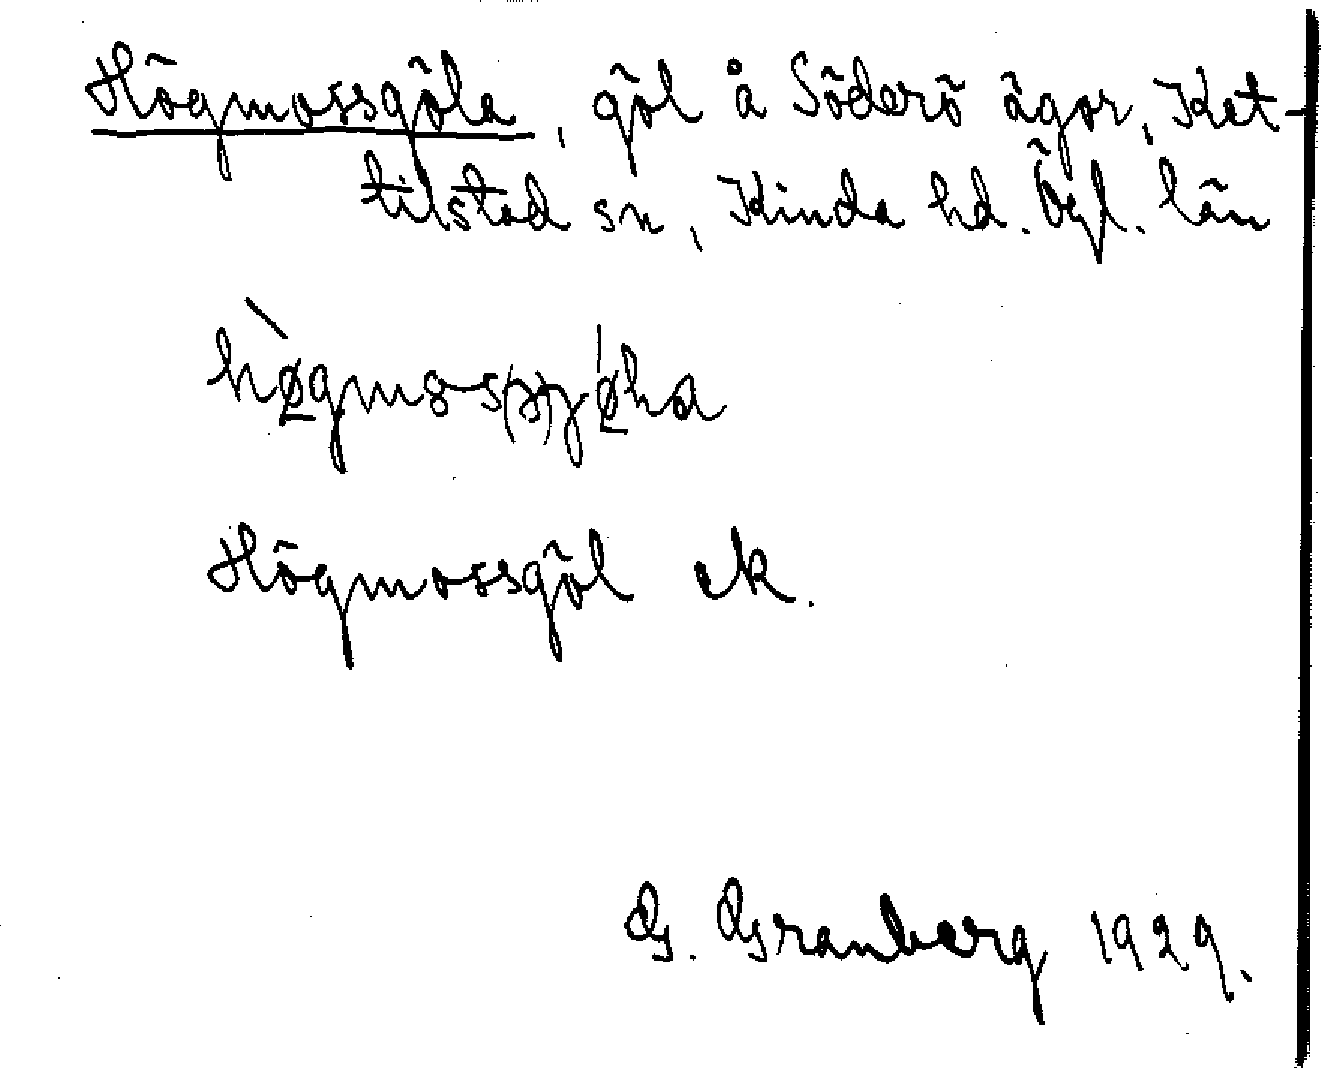 Högmossgöla, göl å Söderö ägor, Ket-
tilstad sn, Kinda hd. Ögl. län
Högmossgöl ek.
G. Granberg 1929.